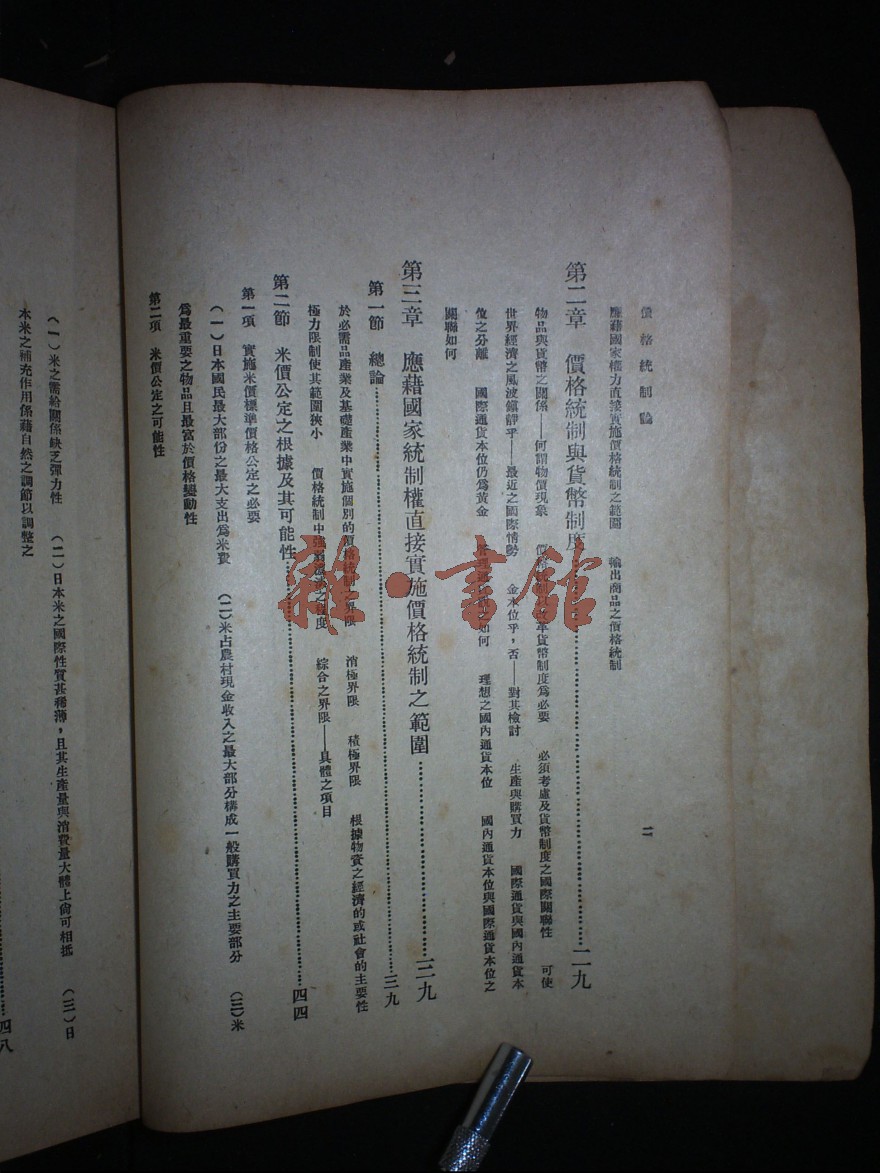 價格統制論
應藉國家權力直接實施價格統制之範圍　輸出商品之價格統制
二
第二章　價格統制與貨幣制度……二九
物品與貨幣之關係——何謂物價現象　貨幣制度爲必要　必須考慮及貨幣制度之國際關聯性　可使
世界經濟之風波鎮靜乎——最近之國際情勢　金本位乎，否——對其檢討　生產與購買力　國際通貨與國內通貨本
位之分離　國際通貨本位仍爲黃金　如何　理想之國內通貨本位　國內通貨本位與國際通貨本位之
關聯如何
第三章　應藉國家統制權直接實施價格統制之範圍……三九
第一節　總論……三九
於必需品產業及基礎產業中實施個別的價格統制　界限　消極界限　積極界限　根據物資之經濟的或社會的主要性
極力限制使其範圍狹小　價格統制中強　程度　綜合之界限——具體之項目
第二節　米價公定之根據及其可能性……四四
第一項　實施米價標準價格公定之必要
（一）日本國民最大部份之最大支出爲米費　（二）米占農村現金收入之最大部分構成一般購買力之主要部分　（三）米
爲最重要之物品且最富於價格變動性
第二項　米價公定之可能性
（一）米之需給關係缺乏彈力性　（二）日本米之國際性質甚稀薄，且其生產量與消費量大體上尙可相抵　（三）日
本米之補充作用係藉自然之調節以調整之
……四八
雜·書館